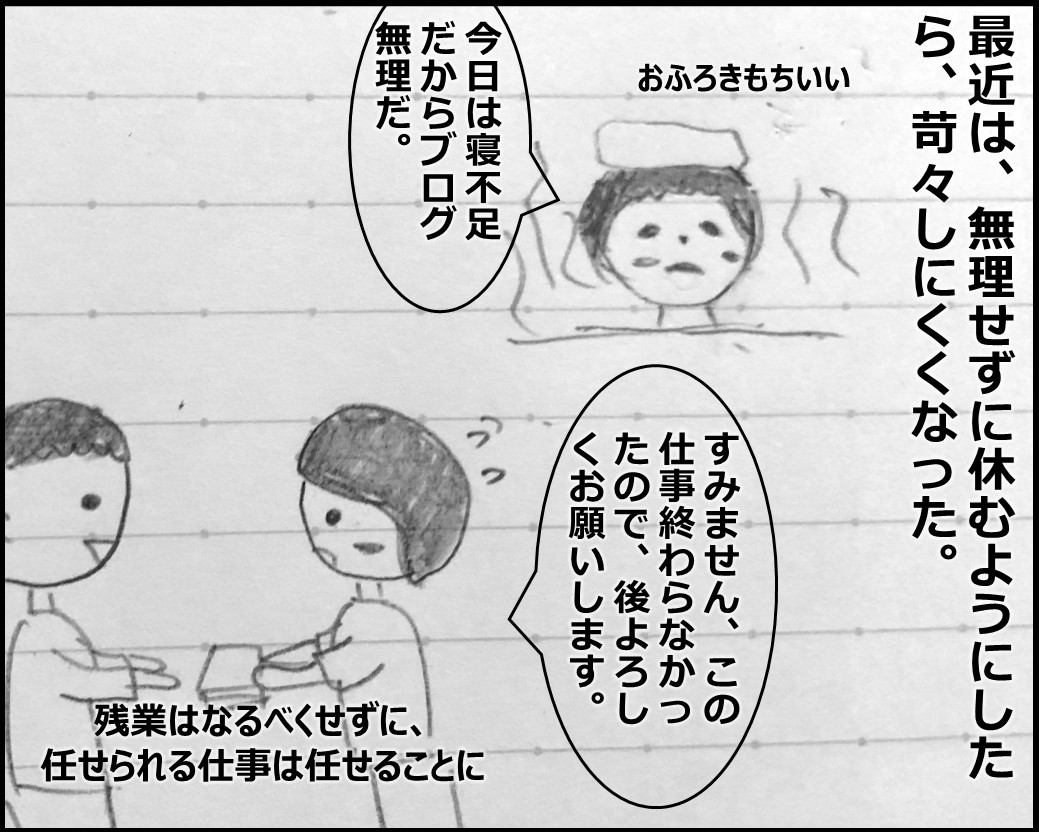 最近は、無理せずに休むようにした
ら、苛々しにくくなった。
おふろきもちいい
今日は寝不足
だからブログ
無理だ。
すみません、この
仕事終わらなかっ
たので、後よろし
くお願いします。
残業はなるべくせずに、
任せられる仕事は任せることに